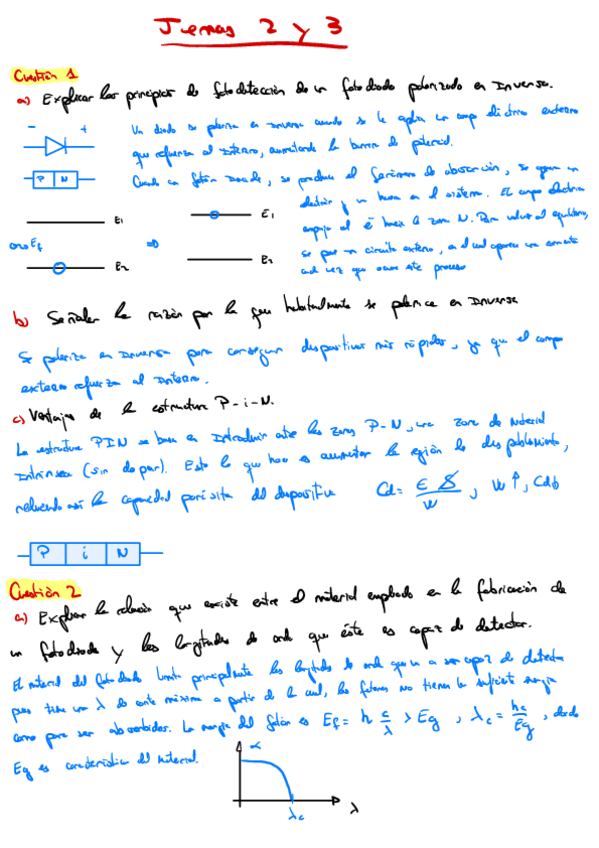 Temas 2 y 3
Cuestión 1
a) Explicar los principios de fotodetección de un fotodiodo polarizado en inversa.
- +
Un diodo se polariza en inversa cuando se le aplica un campo eléctrico externo
que refuerza al interno, aumentando la barrera de potencial.
P N
Cuando un fotón incide, se produce el fenómeno de absorción, se genera un
electrón y un hueco en el sistema. El campo eléctrico
E1 E1
empuja al e⁻ hacia la zona N. Para volver al equilibrio,
Ef ⇒
se pone un circuito externo, en el cual aparece una corriente
E2 E2
cada vez que ocurre este proceso
b) Señalar la razón por la que habitualmente se polariza en inversa
Se polariza en inversa para conseguir dispositivos más rápidos, ya que el campo
externo refuerza al interno.
c) Ventajas de la estructura P-i-N.
La estructura PIN se basa en introducir entre las zonas P-N, una zona de material
intrínseca (sin dopar). Esto lo que hace es aumentar la región de desplobamiento,
reduciendo así la capacidad parásita del dispositivo Cd = ϵ S / W , W ↑, Cd↓
P i N
Cuestión 2
a) Explicar la relación que existe entre el material empleado en la fabricación de
un fotodiodo y las longitudes de onda que éste es capaz de detectar.
El material del fotodiodo limita principalmente las longitudes de onda que va a ser capaz de detectar
pues tiene una λ de corte máxima a partir de la cual, los fotones no tienen la suficiente energía
como para ser absorbidos. La energía del fotón es Ef = h c/λ > Eg , λc = hc/Eg , donde
Eg es característica del material.
α
λc λ